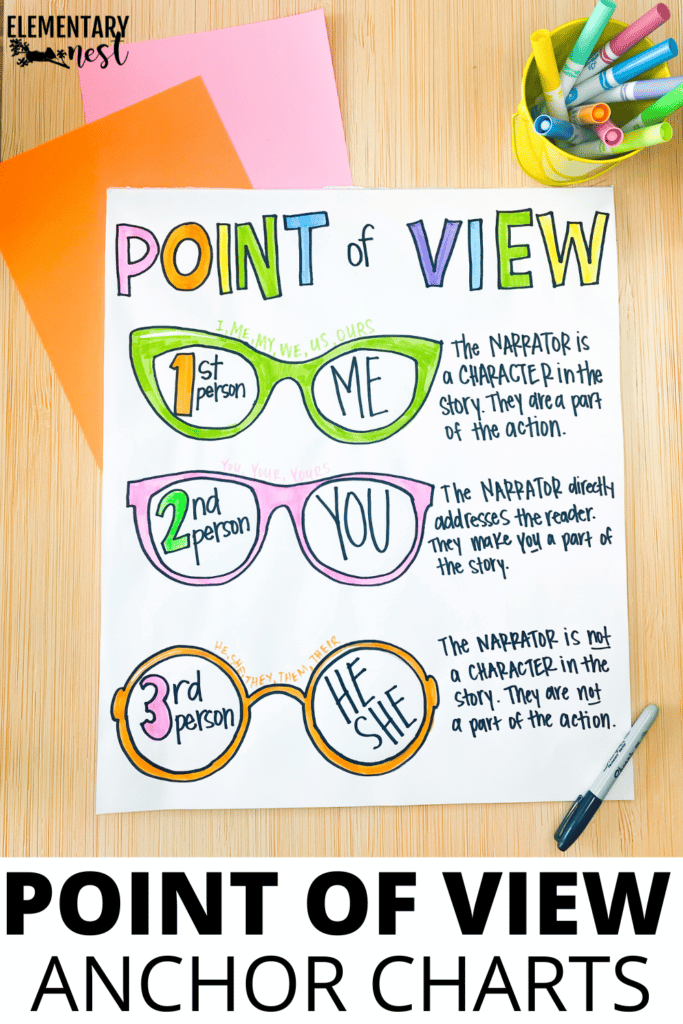 ELEMENTARY
nest
POINT of VIEW
I, ME, MY, WE, US, OURS
1st
person
ME
The NARRATOR is
a CHARACTER in the
story. They are a part
of the action.
You, Your, Yours
2nd
person
YOU
The NARRATOR directly
addresses the reader.
They make you a part of
the story.
HE, SHE, THEY, THEM, THEIR
3rd
person
HE
SHE
The NARRATOR is not
a CHARACTER in the
story. They are not
a part of the action.
Sharpie
POINT OF VIEW
ANCHOR CHARTS